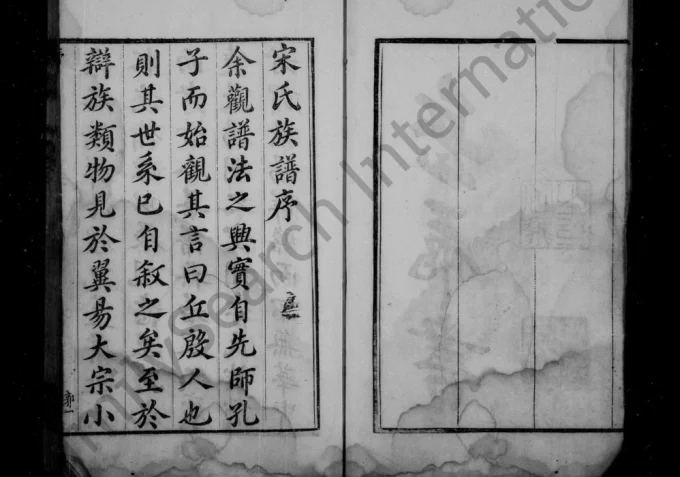 宋氏族譜序
余觀譜法之興實自先師孔
子而始觀其言曰丘殷人也
則其世系已自叙之矣至於
辯族類物見於翼易大宗小